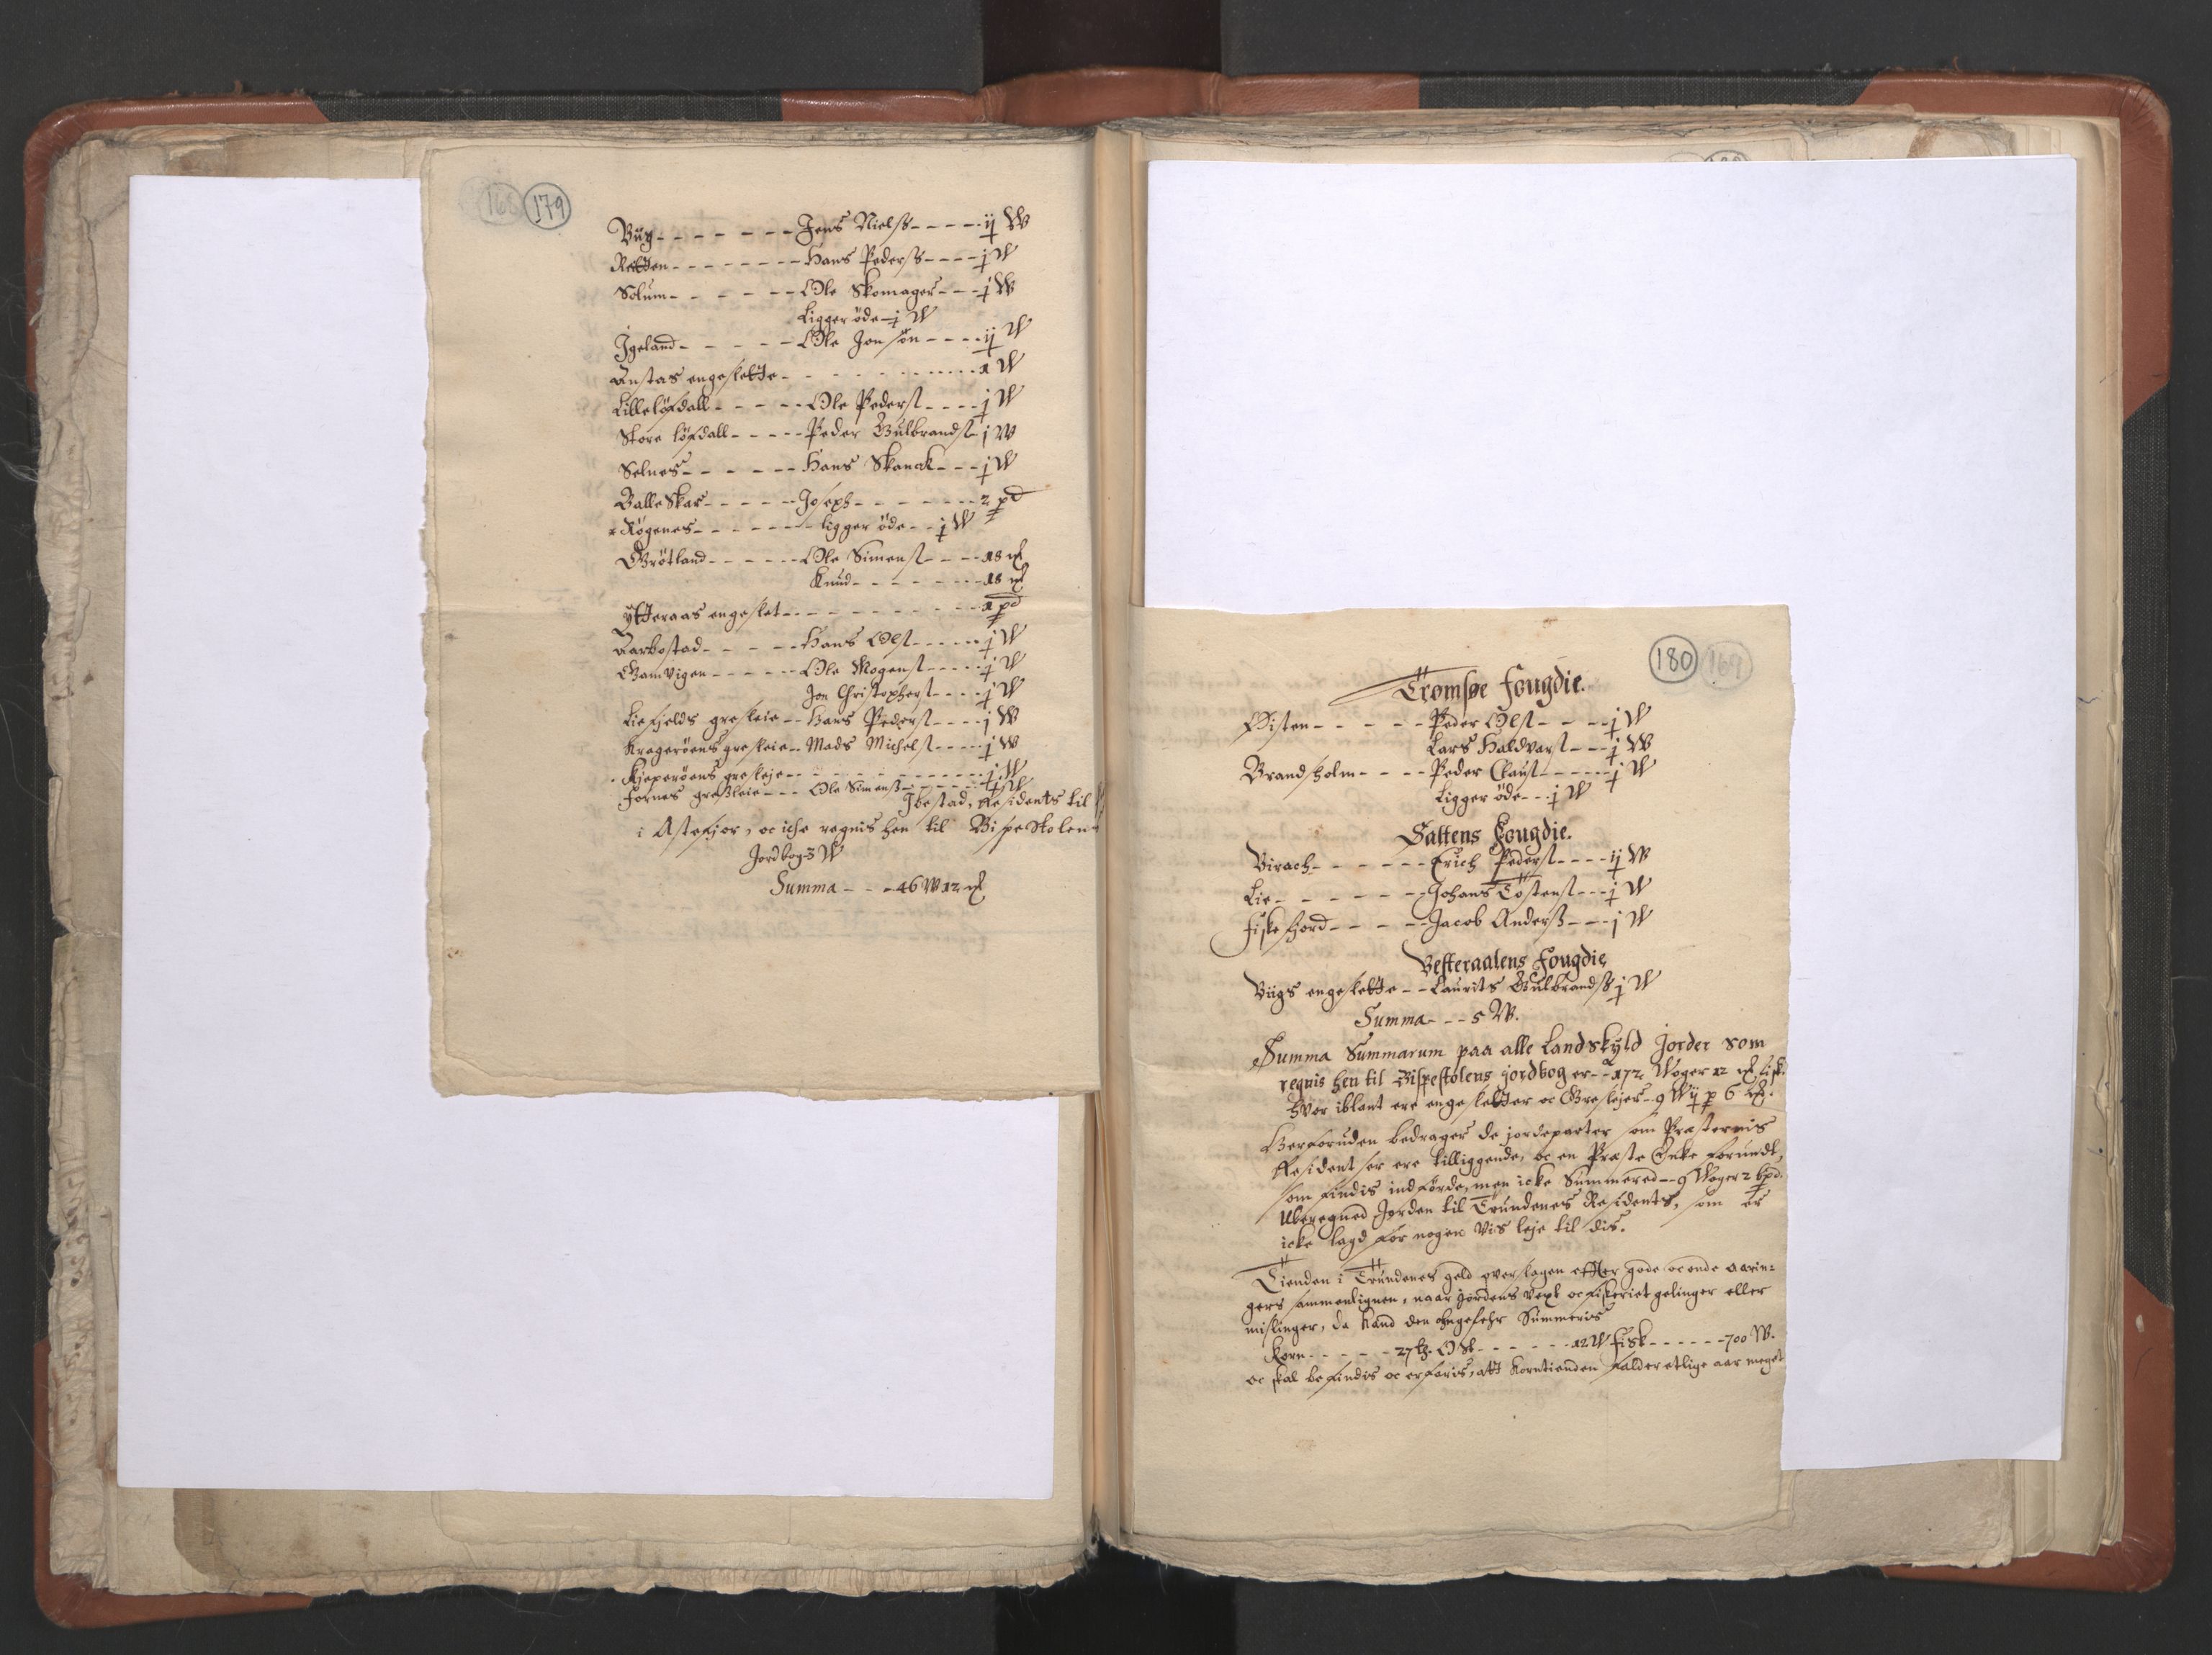 168 179
Büg - - - - - - - Jens Nielß - - - - ij W
Retten - - - - - - - - Hans Pederß - - - - j W
Solum - - - - - - Ole Skomager - - - j W
Ligger öde - j W
Jgeland - - - - - Ole Jonsön - - - - ij W
Anstas engeslette - - - - - - - - - - 1 W
Lille löfdall - - - - - Ole Peders - - - - j W
Store löfdall - - - - - Peder Gulbrands j W
Selnes - - - - - - Hans Skanck - - - j W
Balleskar - - - - - Joseph - - - - - - - 2 pd
Rögenes - - - - - - ligger öde - - j W
Grötland - - - - - Ole Simens - - - 18 ɱ
Knud - - - - - - - 18 ɱ
ytteraas engeslet - - - - - - - - - - 1 pd
Aarbostad - - - - - Hans Ols - - - - - j W
Gamvigen - - - - - Ole Mogens - - - - - j W
Jon Christophers - - - - j W
Liefjelds gresleie - - Hans Peders - - - - j W
Kragerøens gresleie - - Mads Michels - - - - j W
Kjeperøens gresleje - - - - - - - - - - - j W
Fornes greßleie - - - Ole Simenß - - - - - j W
Jbestad, Residents til
i Astefjor, oc iche regnis hen til Bispestolens
Jordbog 3 W
Summa - - - 46 W 12 ɱ
180 169
Tromsøe fougdie.
Gisten - - - - - Peder Ols - - - - j W
Lars Haldvars - - - j W
Brandsholm - - - - Peder Claus - - - - - j W
Ligger öde - - - j W
Saltens Fougdie.
Virach - - - - - - Erich Peders - - - - ij W
Lie - - - - - - - Johans Tostens - - - j W
Fiskefjord - - - - - Jacob Anderß - - - j W
Vesteraalens Fougdie
Viigs engeslette - - Laurits Gulbrandß j W
Summa - - - 5 W.
Summa Summarum paa alle Landskyld Jorder som
regnis hen til Bispestolens jordbog er - - 172 Woger 12 ɱ fisk.
hvor iblant ere engesletter oc Greslejer - 9 W ij p 6 ɱ.
Herforuden bedrager de jordeparter som Præsternis
Residentser ere tilliggende, oc en Præste Encke forundt,
som findis indførde, men icke Summered - - 9 Woger 2 bpd.
Uberegned Jorden til Trundenes Residents, som er
icke lagd for nogen vis leje til dis.
Tienden i Trundenes geld overslagen effter gode oc onde aarin=
gers sammenlignen, naar jordens vext oc fiskeriet gelinger eller
mislinger, da kand den ohngefehr Summeris
Korn - - - - - 27 tꝫ. Ost - - - - - - 12 W fisk - - - - - - 700 W.
oc skal befindis oc erfaris, att Korntienden falder etlige aar meget